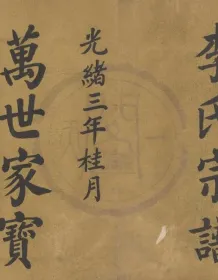 李氏宗譜
光緒三年桂月
萬世家寶